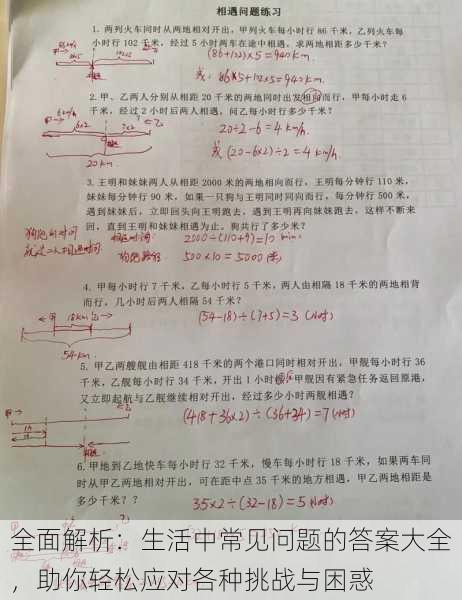 相遇问题练习
1. 两列火车同时从两地相对开出，甲列火车每小时行 86 千米，乙列火车每
小时行 102 千米，经过 5 小时两车在途中相遇，求两地相距多少千米？
(86+102)×5=940km.
或：86×5+102×5=940km.
2. 甲、乙两人分别从相距 20 千米的两地同时出发相向而行，甲每小时走 6
千米，经过 2 小时后两人相遇，问乙每小时行多少千米？
20÷2-6=4km/h.
或 (20-6×2)÷2=4km/h.
6km/h
6×2
20km
3. 王明和妹妹两人从相距 2000 米的两地相向而行，王明每分钟行 110 米，
妹妹每分钟行 90 米，如果一只狗与王明同时同向而行，每分钟行 500 米，
遇到妹妹后，立即回头向王明跑去，遇到王明再向妹妹跑去，这样不断来
回，直到王明和妹妹相遇为止。狗共行了多少米？
狗跑的时间
就是二人相遇时间
500×10=5000(米)
4. 甲每小时行 7 千米，乙每小时行 5 千米，两人由相隔 18 千米的两地相背
而行，几小时后两人相隔 54 千米？
(54-18)÷(7+5)=3(小时)
18km
54km
5. 甲乙两艘舰由相距 418 千米的两个港口同时相对开出，甲舰每小时行 36
千米，乙舰每小时行 34 千米，开出 1 小时 甲舰因有紧急任务返回原港，
又立即起航与乙舰继续相对开出，经过多少小时两舰相遇？
(418+36×2)÷(36+34)=7(小时)
6. 甲地到乙地快车每小时行 32 千米，慢车每小时行 18 千米，如果两车同
时从甲乙两地相对开出，可在距中点 35 千米的地方相遇，甲乙两地相距是
多少千米？？
35×2÷(32-18)=5(小时)
全面解析：生活中常见问题的答案大全
，助你轻松应对各种挑战与困惑